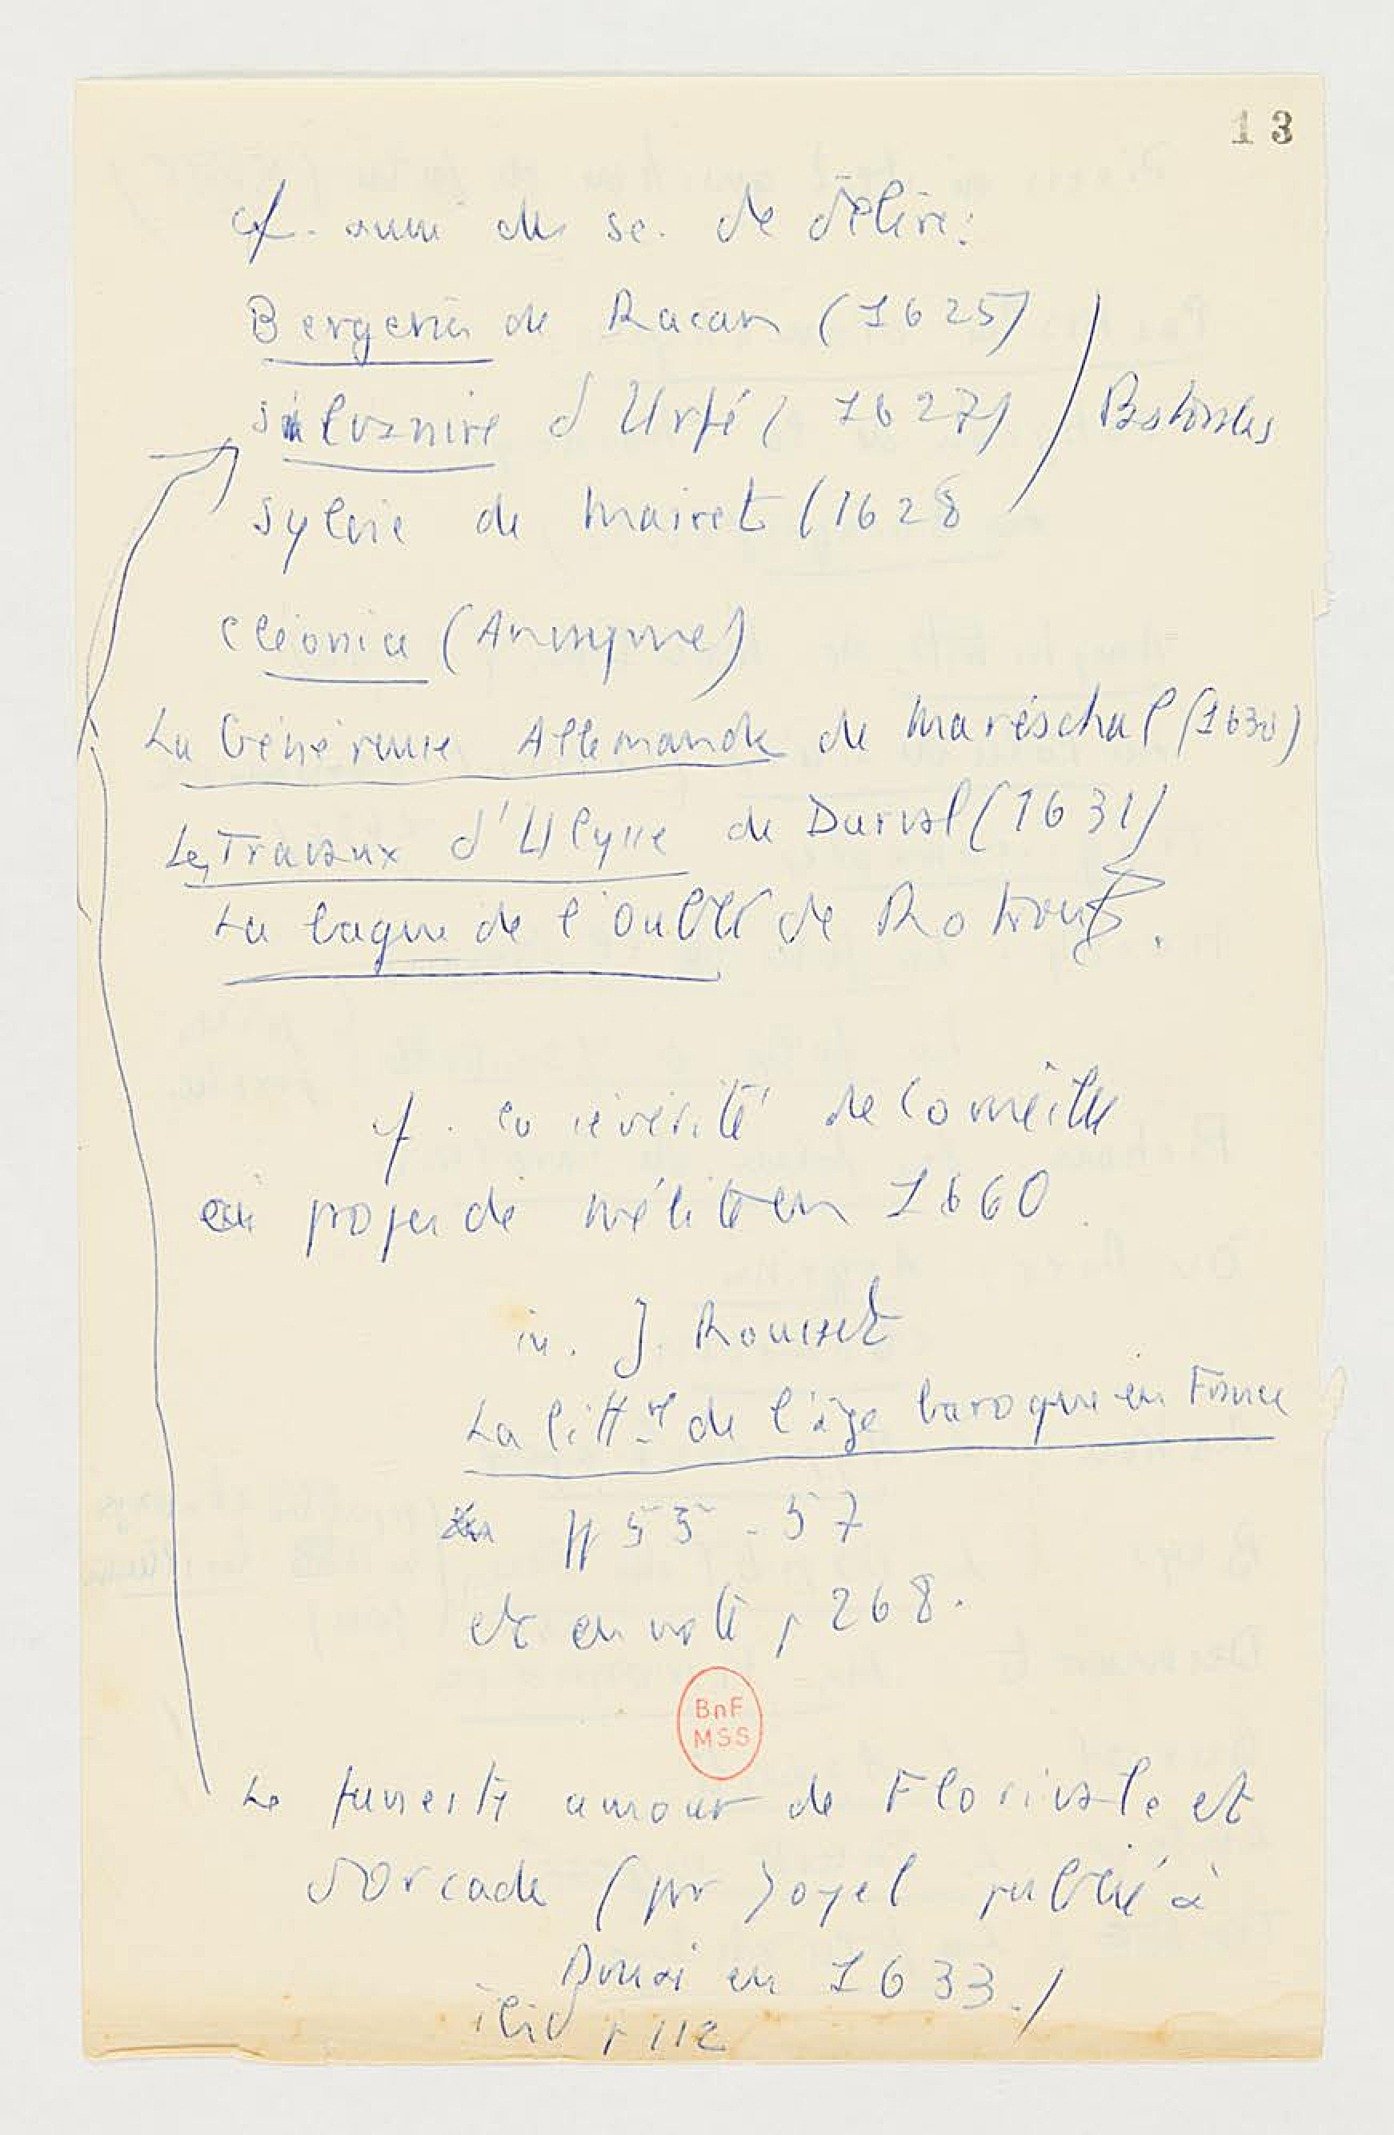 13
cf. aussi des sc. de délire:
Bergeries de Racan (1625)
Silvanire d'Urfé (1627) Pastorales
Sylvie de Mairet (1628
Cléonice (Anonyme)
La Généreuse Allemande de Maréschal (1630)
Les Travaux d'Ulysse de Durval (1631)
La bague de l'oubli de Rotrou.
cf. la sévérité de Corneille
à propos de Mélite en 1660
in. J. Rousset
La littre de l'âge baroque en France
pp 55-57
et en note p 268.
Le funeste amour de Florivale et
d'Orcade (par Joyel publié à
Douai en 1633.)
ibid p 112
BnF
MSS